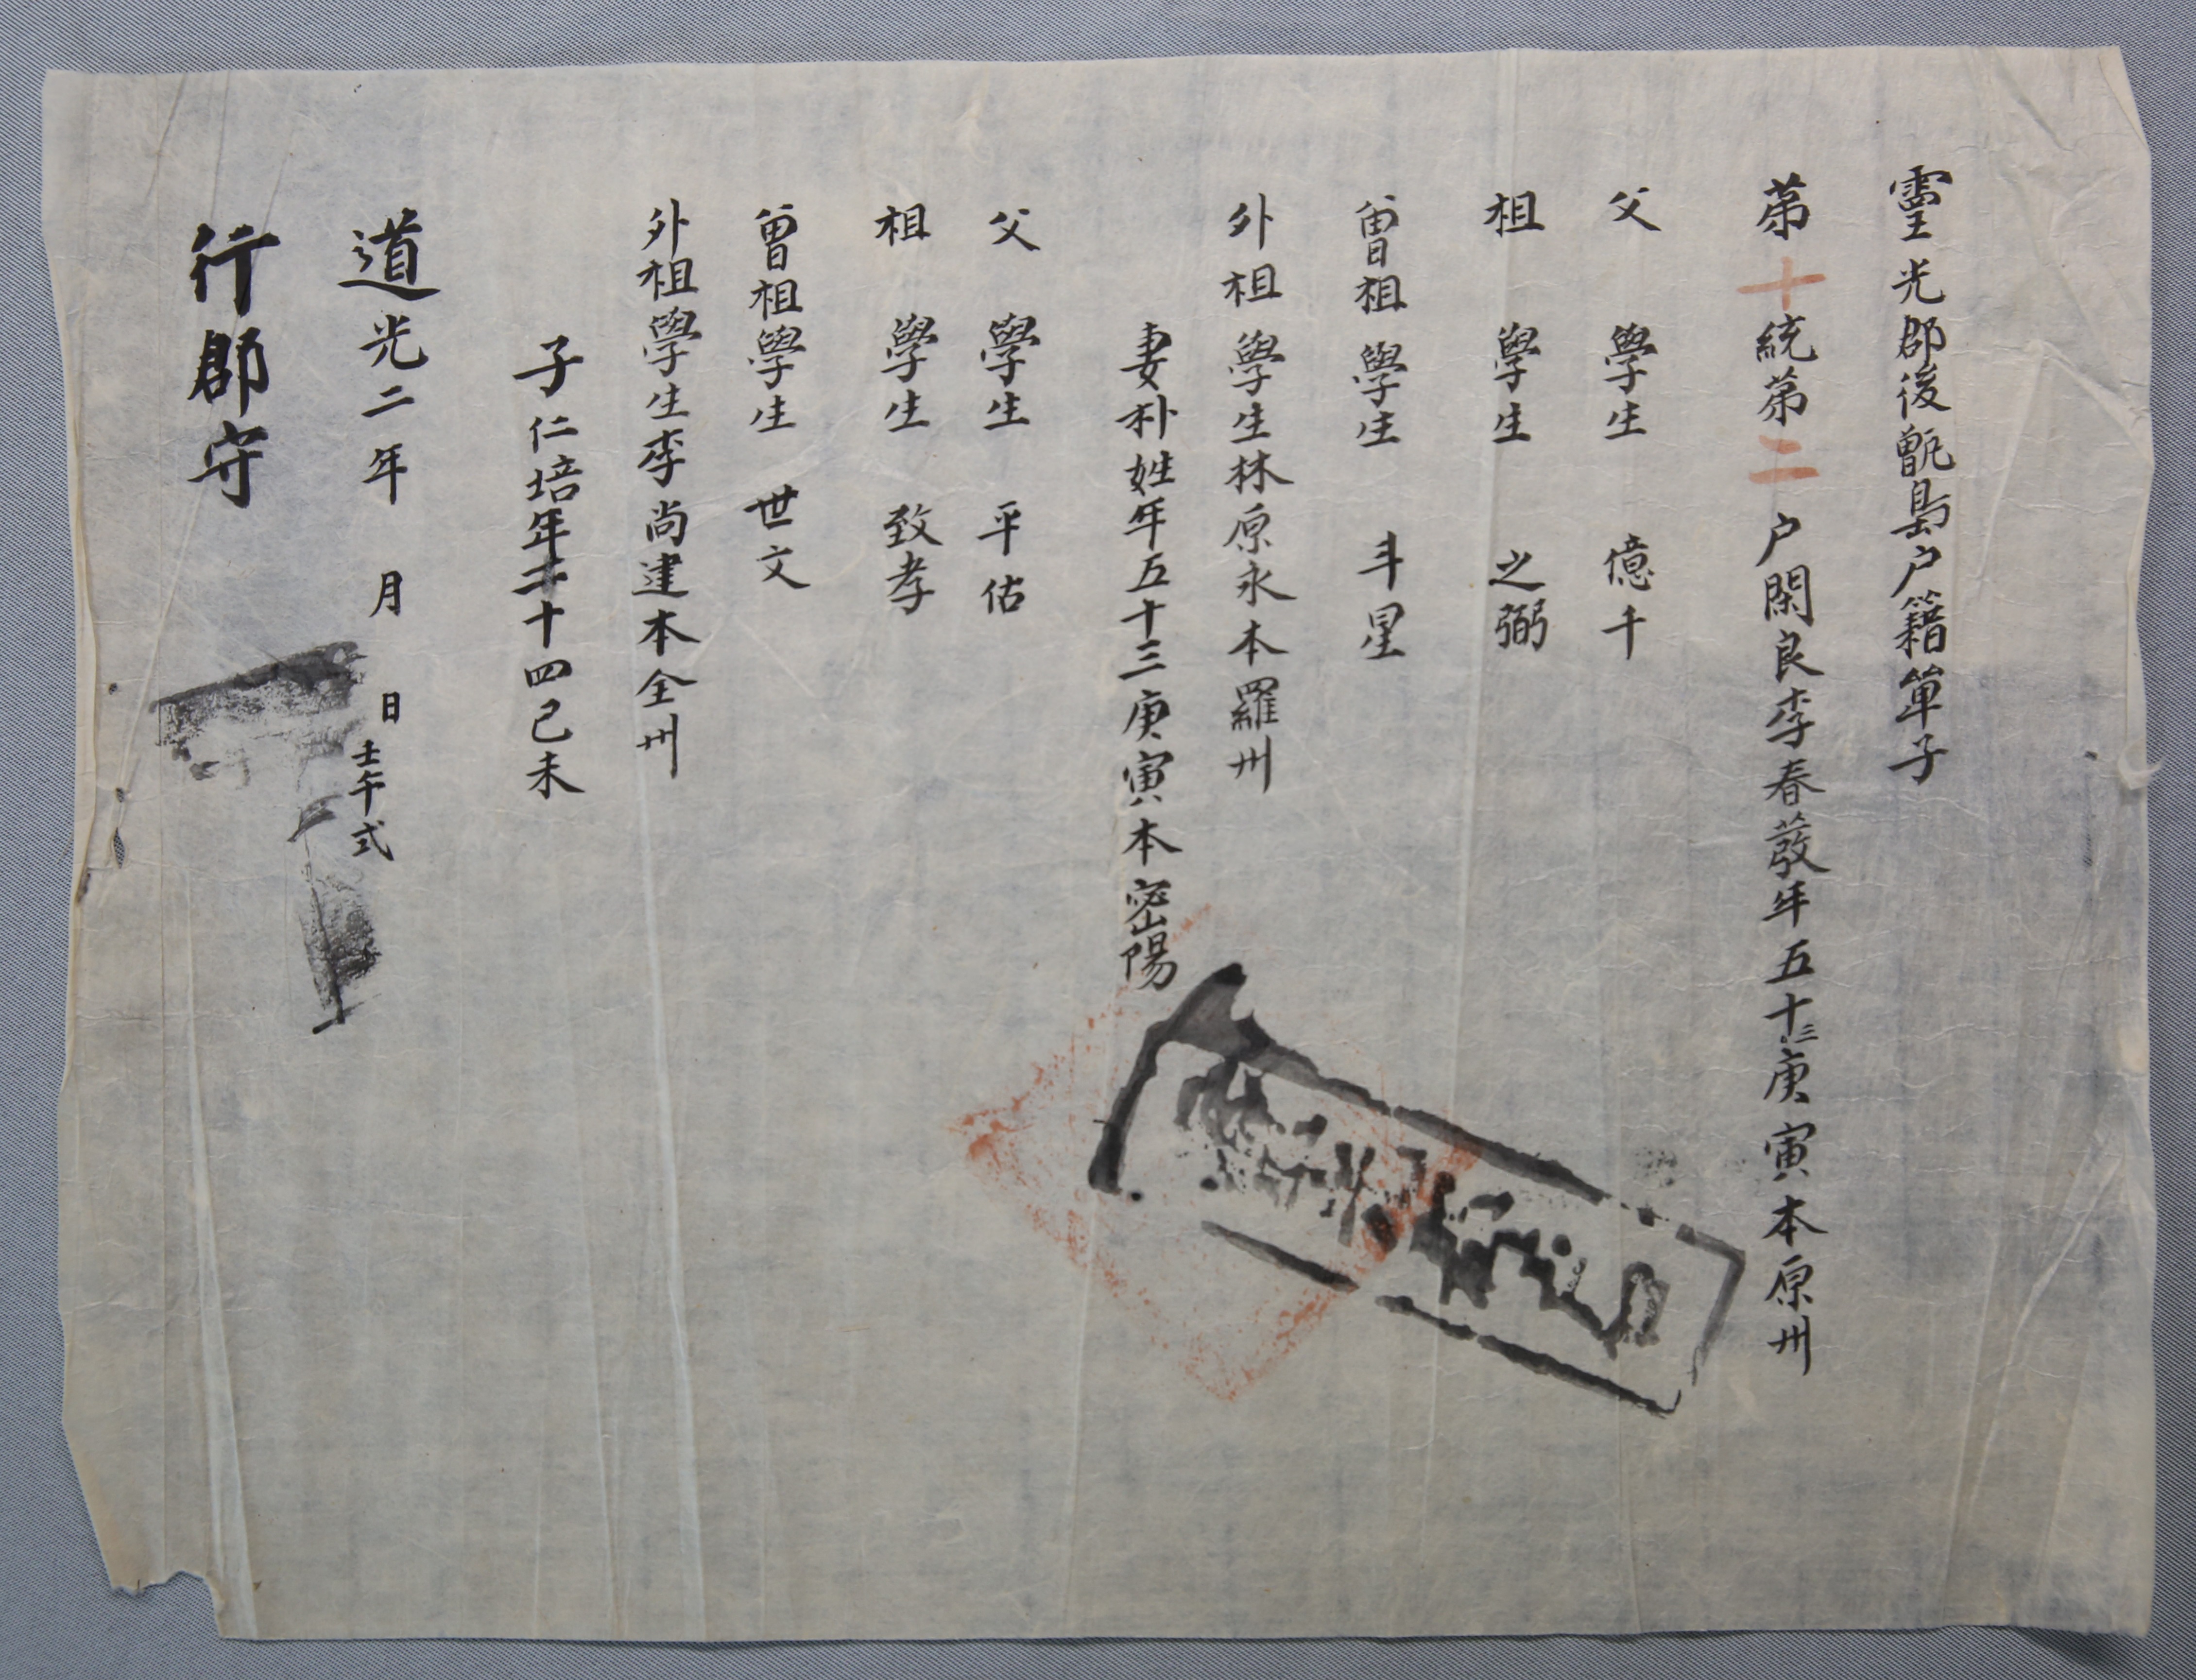 靈光郡後甑島户籍單子
第十統第二户閑良李春發年五十三庚寅本原州
父學生億千
祖學生之弼
曾祖學生斗星
外祖學生林原永本羅州
妻朴姓年五十三庚寅本密陽
父學生平佑
祖學生致孝
曾祖學生世文
外祖學生李尚建本全州
子仁培年二十四己未
道光二年月日壬午式
行郡守